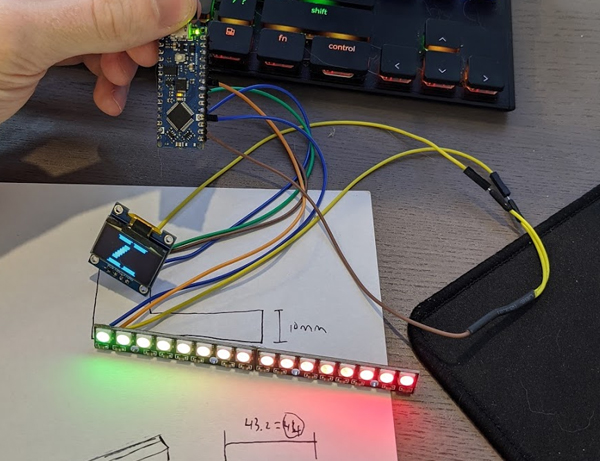 shift
fn
control
Z
10mm
43.2 = 44